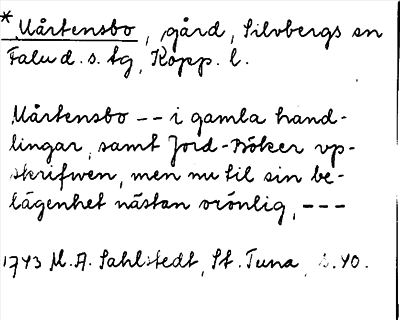 *Mårtensbo, gård, Silvbergs sn
Falu d. s. tg, Kopp. l.
Mårtensbo -- i gamla hand-
lingar, samt Jord-Böker up-
skrifwen, men nu til sin be-
lägenhet nästan urönlig, ---
1743 M. A. Sahlstedt, St. Tuna, s. 40.